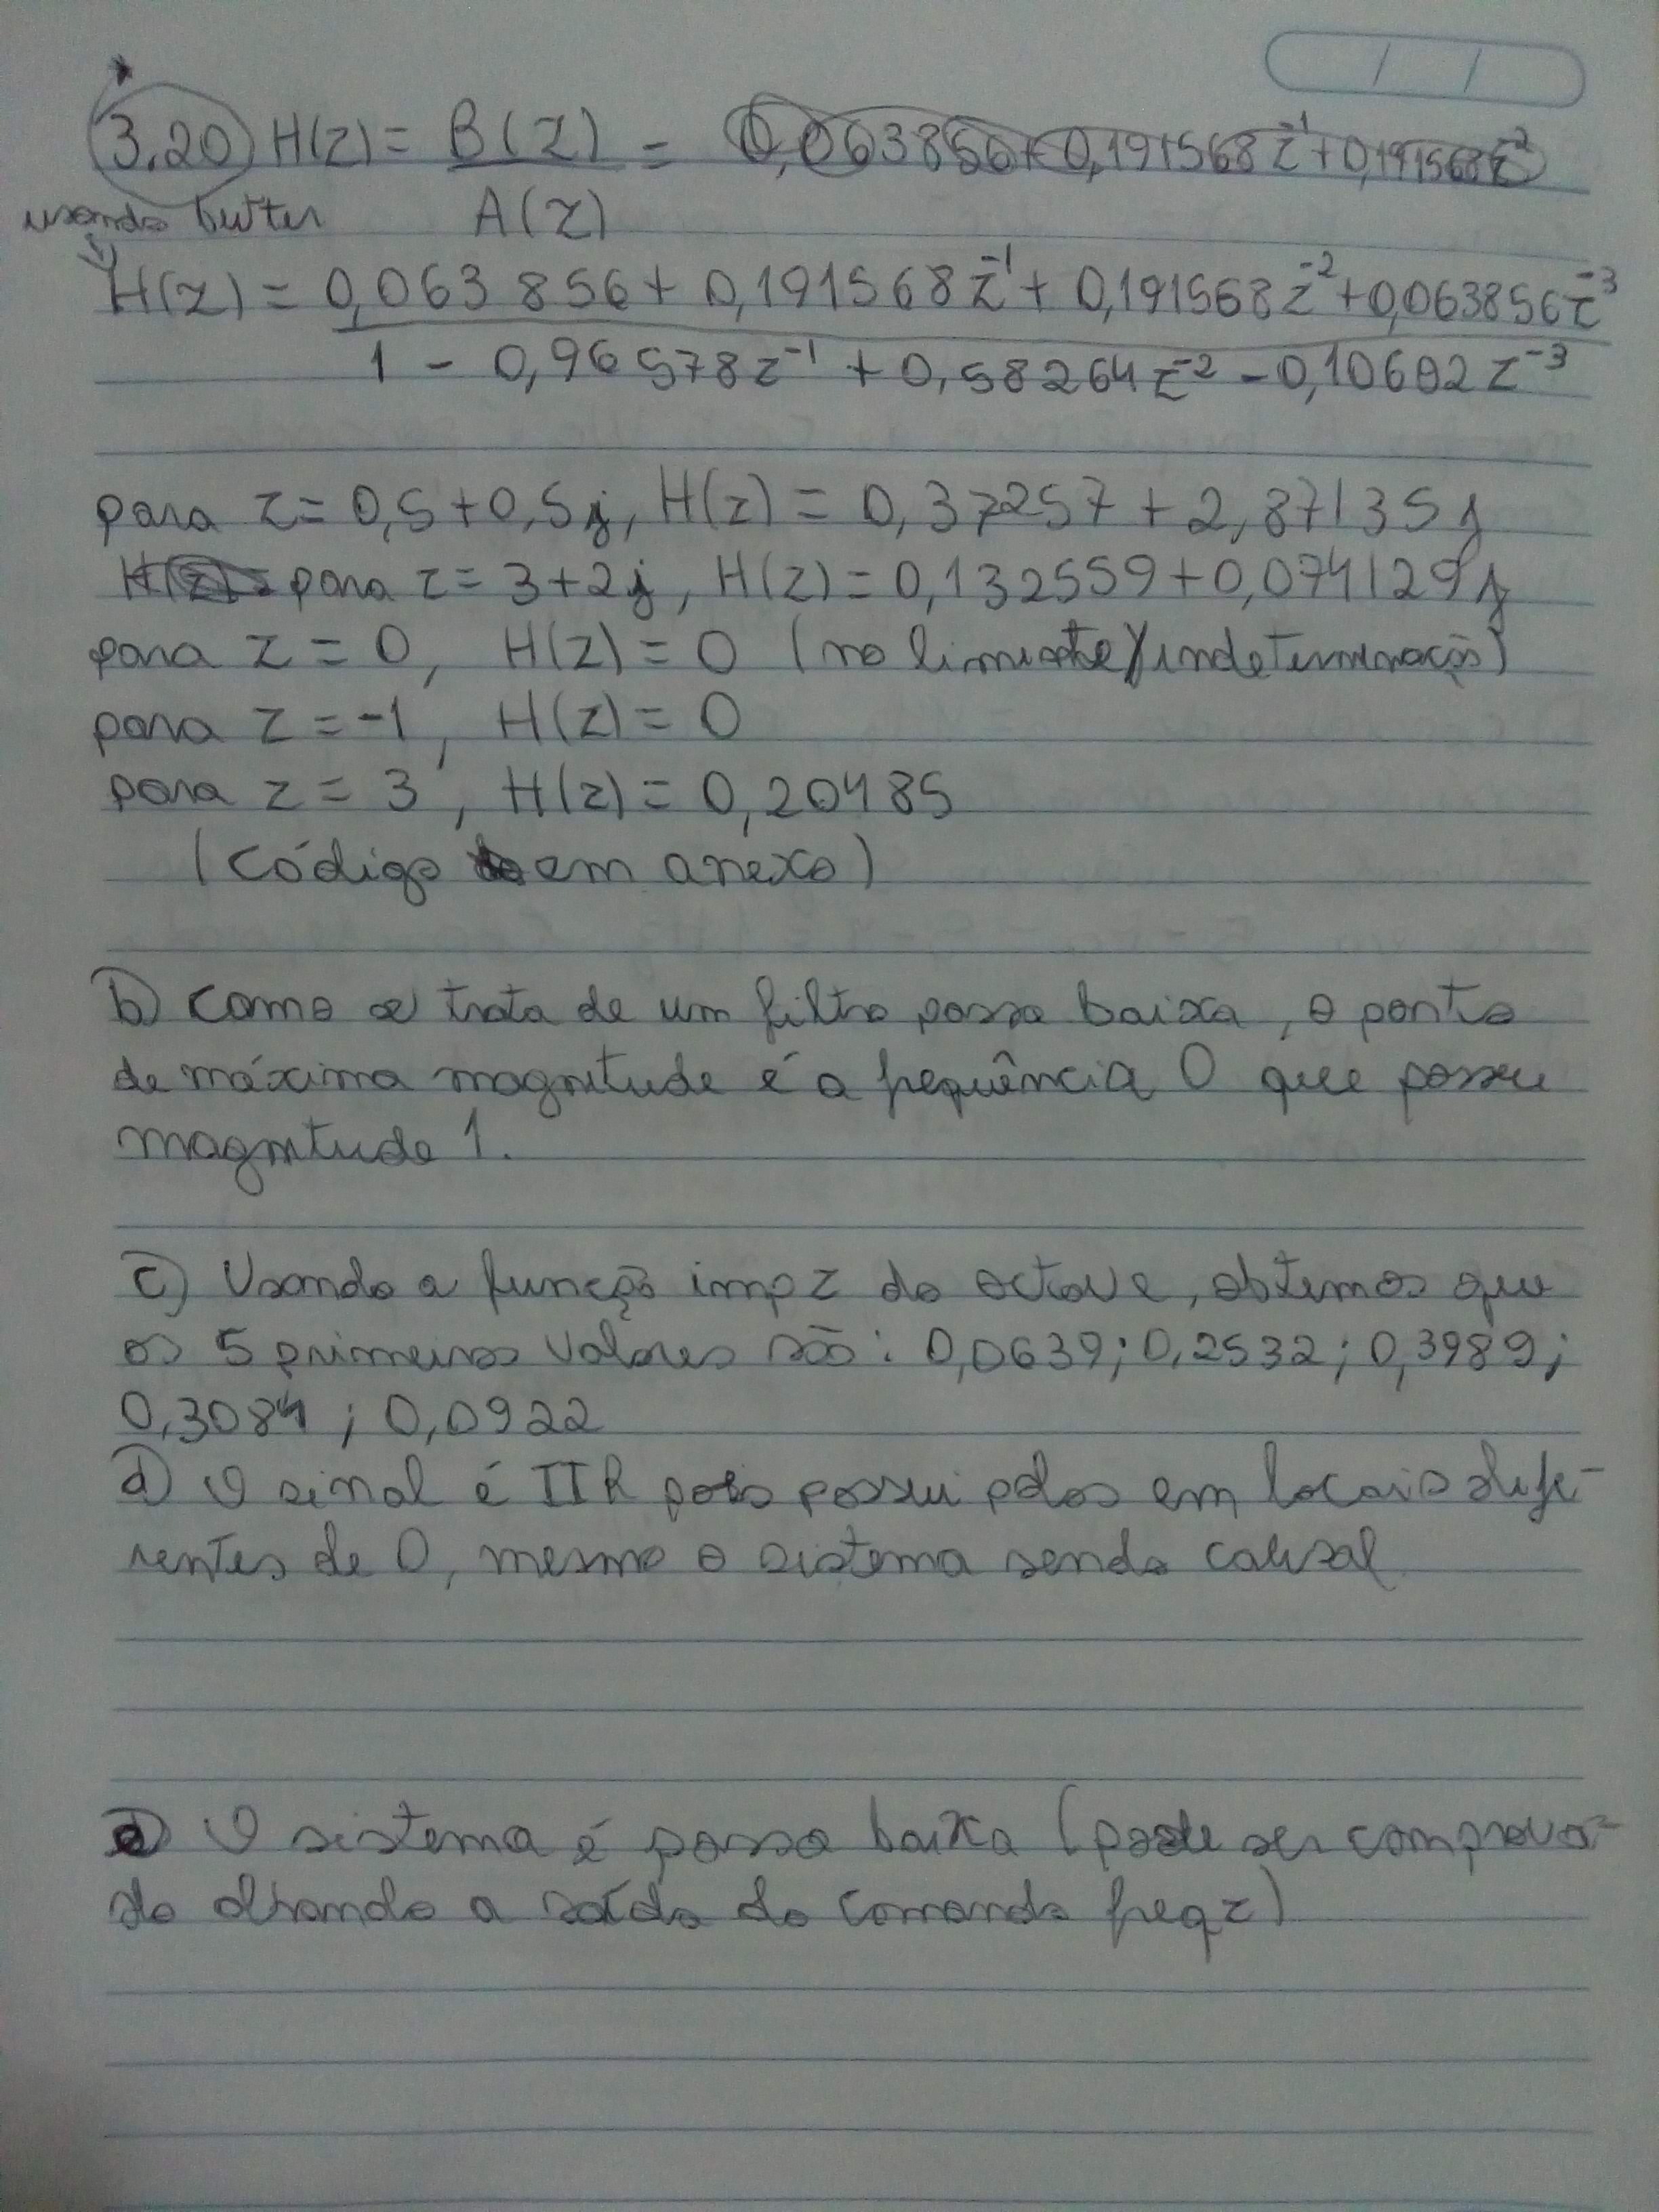 3.20 H(z) = B(z) = 0,063856+0,191568z^-1+0,191568z^-2
usando butter A(z)
H(z) = 0,063856 + 0,191568z^-1 + 0,191568z^-2 + 0,063856z^-3
1 - 0,96578z^-1 + 0,58264z^-2 - 0,10602z^-3
para z = 0,5+0,5j, H(z) = 0,37257 + 2,87135j
H(z)= para z = 3+2j, H(z) = 0,132559+0,074129j
para z = 0, H(z) = 0 (no limite)(indeterminação)
para z = -1, H(z) = 0
para z = 3, H(z) = 0,20485
(código em anexo)
b) Como se trata de um filtro passa baixa, o ponto
de máxima magnitude é a frequência 0 que possui
magnitude 1.
c) Usando a função impz do octave, obtemos que
os 5 primeiros valores são: 0,0639; 0,2532; 0,3989;
0,3084; 0,0922
d) O sinal é IIR pois possui polos em locais dife-
rentes de 0, mesmo o sistema sendo causal
e) O sistema é passa baixa (pode ser comprova-
do olhando a saída do comando freqz)